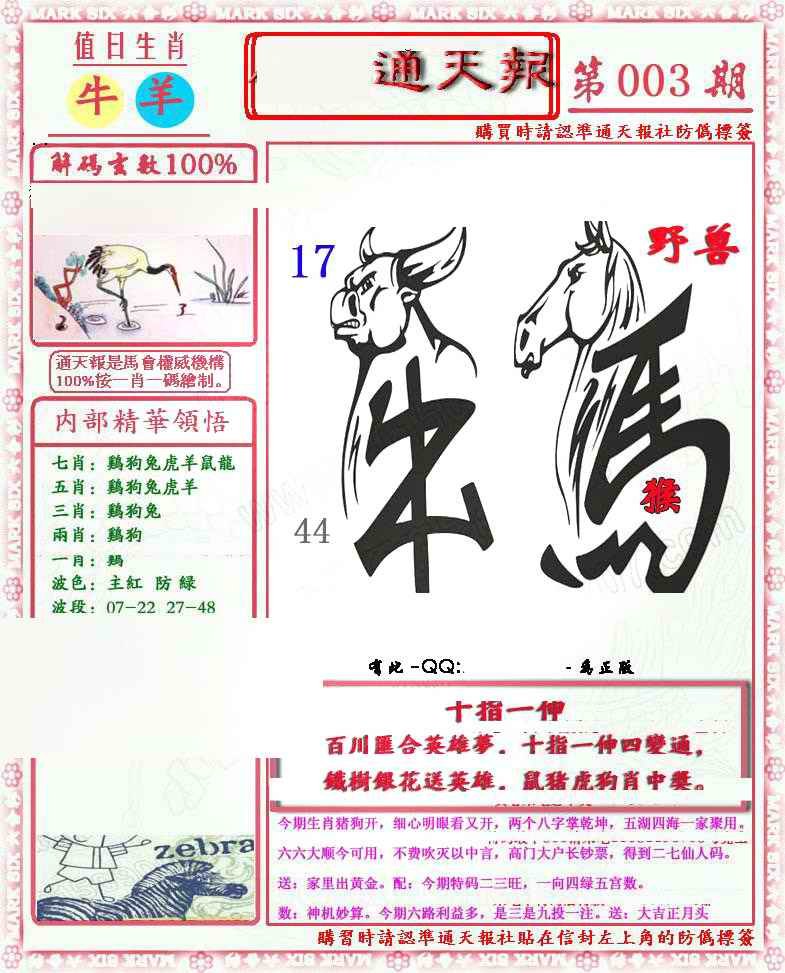 MARK SIX 六合彩 MARK SIX 六合彩 MARK SIX 六合彩 MARK SIX 六合彩 MARK SIX
值日生肖
牛 羊
通天報
第003期
購買時請認準通天報社防偽標簽
解碼玄數100%
17
野兽
2 3
通天報是馬會權威機構
100%按一肖一碼繪制。
内部精華領悟
七肖：鷄狗兔虎羊鼠龍
五肖：鷄狗兔虎羊
三肖：鷄狗兔
兩肖：鷄狗
一肖：鷄
波色：主紅 防 綠
波段：07-22 27-48
牛
馬
猴
44
有此-QQ: -為正版
十指一伸
百川匯合英雄夢。十指一伸四變通，
鐵樹銀花送英雄。鼠猪虎狗肖中獎。
今期生肖猪狗开，细心明眼看又开，两个八字掌乾坤，五湖四海一家聚用。
六六大顺今可用，不费吹灰以中言，高门大户长钞票，得到二七仙人码。
送：家里出黄金。配：今期特码二三旺，一向四绿五宫数。
数：神机妙算。今期六路利益多，是三是九投一注。送：大吉正月头
zebra
購習時請認準通天報社貼在信封左上角的防偽標簽